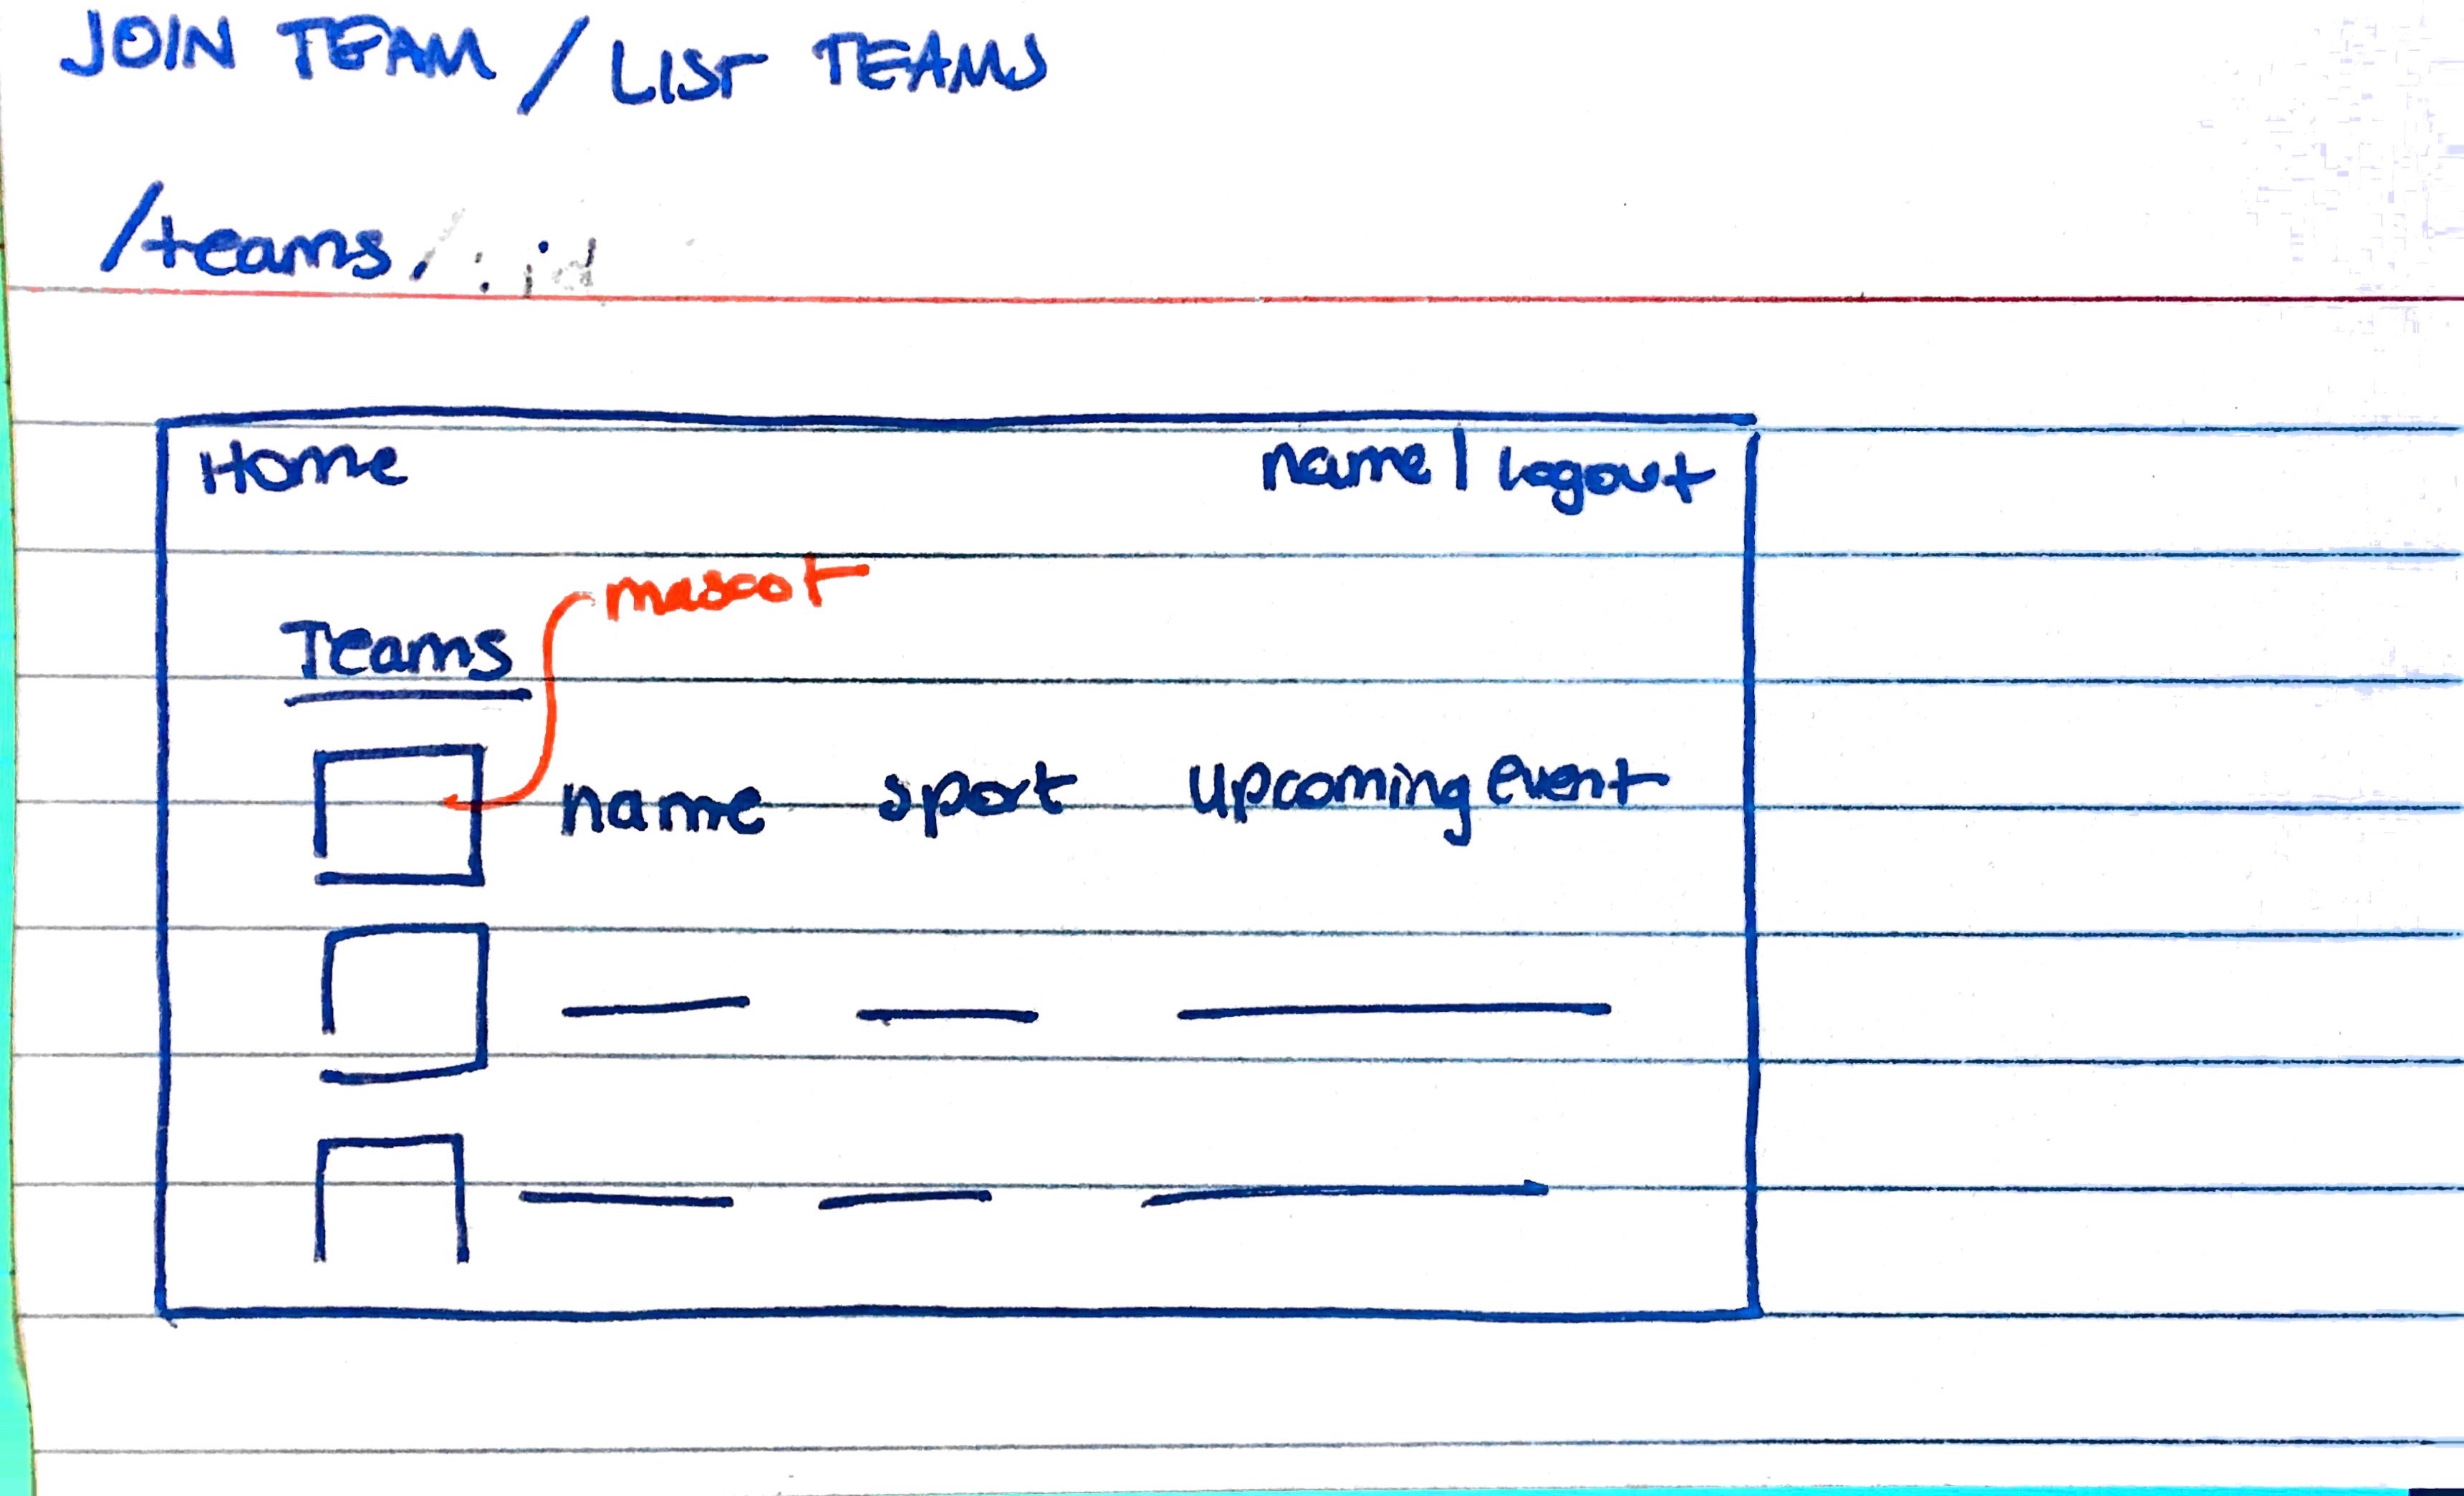 JOIN TEAM / LIST TEAMS
/teams/:id
Home name | logout
mascot
Teams
name sport upcoming event